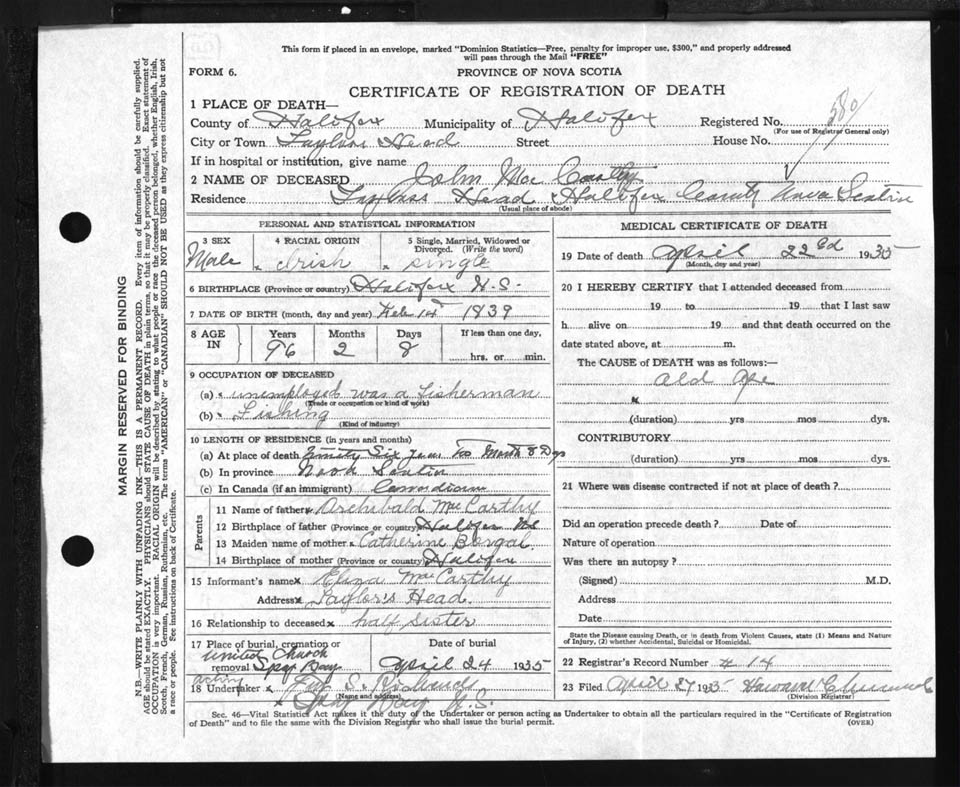 This form if placed in an envelope, marked "Dominion Statistics—Free, penalty for improper use, $300," and properly addressed
will pass through the Mail "FREE"
FORM 6.
PROVINCE OF NOVA SCOTIA
CERTIFICATE OF REGISTRATION OF DEATH
1 PLACE OF DEATH—
County of Halifax Municipality of Halifax Registered No.
(For use of Registrar General only)
City or Town Taylors Head Street House No.
If in hospital or institution, give name
2 NAME OF DECEASED John Mac Carthy
Residence Taylors Head Halifax County Nova Scotia
(Usual place of abode)
PERSONAL AND STATISTICAL INFORMATION
3 SEX 4 RACIAL ORIGIN 5 Single, Married, Widowed or
Divorced. (Write the word)
Male x Irish x single
6 BIRTHPLACE (Province or country) Halifax N.S.
7 DATE OF BIRTH (month, day and year) Feb 14 1839
8 AGE IN Years Months Days If less than one day,
96 2 8 hrs. or min.
9 OCCUPATION OF DECEASED
(a) x unemployed was a Fisherman
(Trade or occupation or kind of work)
(b) x Fishing
(Kind of industry)
10 LENGTH OF RESIDENCE (in years and months)
(a) At place of death Ninety Six years Two Month 8 Dys
(b) In province Nova Scotia
(c) In Canada (if an immigrant) Canadian
Parents
11 Name of father x Archibald Mac Carthy
12 Birthplace of father (Province or country) Halifax
13 Maiden name of mother x Catherine
14 Birthplace of mother (Province or country) x Halifax
15 Informant's name x Eliza MacCarthy
Address x Taylor's Head
16 Relationship to deceased x half sister
17 Place of burial, cremation or Date of burial
United Church
removal Spry Bay April 24 1935
acting
18 Undertaker x S.
(Name and address)
Spry Bay N.S.
MEDICAL CERTIFICATE OF DEATH
19 Date of death April 22 1935
(Month, day and year)
20 I HEREBY CERTIFY that I attended deceased from
19 to 19 that I last saw
h alive on 19 and that death occurred on the
date stated above, at m.
The CAUSE of DEATH was as follows:—
Old Age
x
(duration) yrs mos dys.
CONTRIBUTORY
(duration) yrs mos dys.
21 Where was disease contracted if not at place of death?
Did an operation precede death? Date of
Nature of operation
Was there an autopsy?
(Signed) M.D.
Address
Date
State the Disease causing Death, or in death from Violent Causes, state (1) Means and Nature
of Injury, (2) whether Accidental, Suicidal or Homicidal.
22 Registrar's Record Number # 14
23 Filed April 27 1935
(Division Registrar)
Sec. 46—Vital Statistics Act makes it the duty of the Undertaker or person acting as Undertaker to obtain all the particulars required in the "Certificate of Registration
of Death" and to file the same with the Division Registrar who shall issue the burial permit.
(OVER)
MARGIN RESERVED FOR BINDING
N.B.—WRITE PLAINLY WITH UNFADING INK—THIS IS A PERMANENT RECORD. Every item of information should be carefully supplied.
AGE should be stated EXACTLY. PHYSICIANS should STATE CAUSE OF DEATH in plain terms, so that it may be properly classified. Exact statement of
OCCUPATION is very important. RACIAL ORIGIN will be described by stating to what people or race the deceased person belonged, whether English, Irish,
Scotch, French, German, Russian, Ruthenian, etc. The terms "AMERICAN" or "CANADIAN" SHOULD NOT BE USED as they express citizenship but not
a race or people. See instructions on back of Certificate.